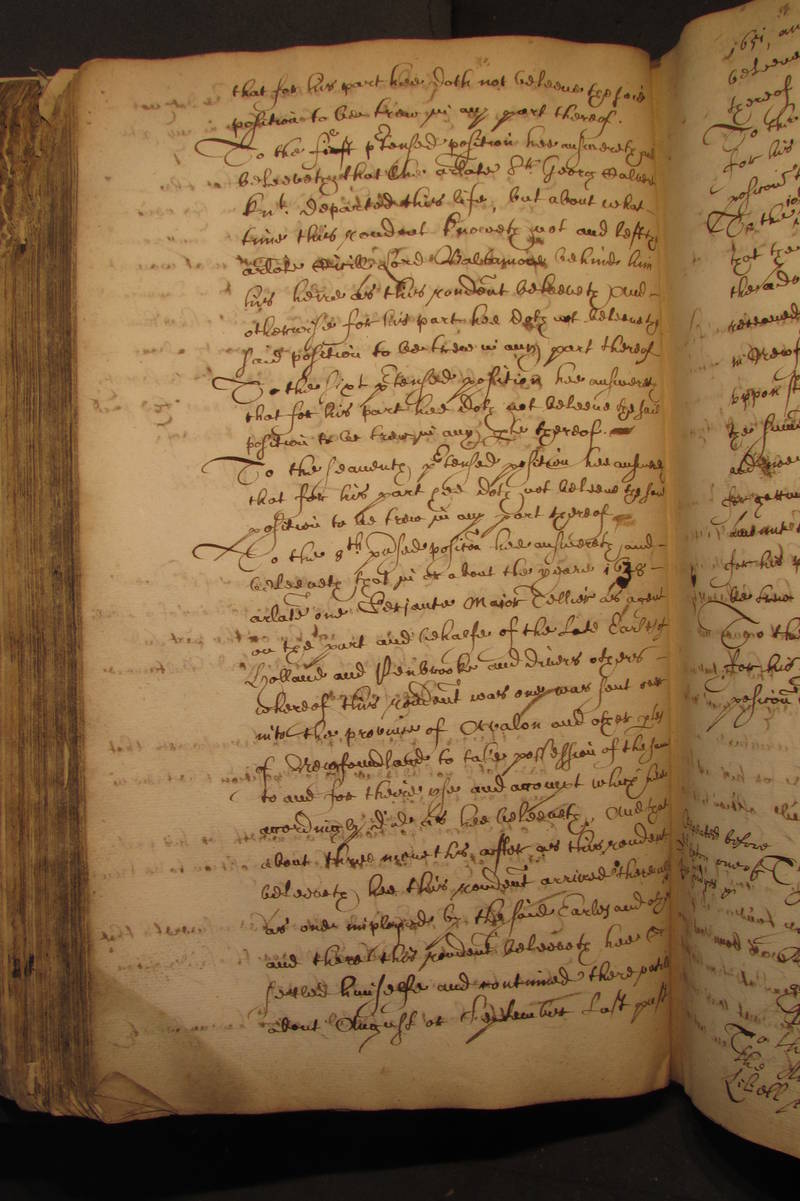 that for his part hee doth not beleeve the said
position to bee trew in any part thereof.
To the first pretensed position hee answereth and
beleeveth that the arlate Sr Georg Calvert
knt. departed this life, but about what
time this rendent knoweth not and lefte
arlate Cecill Lord Baltamore behinde him
his heire as this rondent beleeveth And
otherwise for his part hee doth not beleeve the
said position to be trew in any part thereof
To the sixt ptensed position hee answereth
that for his part hee doth not beleeve the said
position to be trew in any pte thereof.
To the seaventh ptensed position hee answereth
that for his part hee doth not beleeve the said
position to be trew in any part thereof
To the 8th ptensed position hee answereth and
beleeveth that in or about the yeare 1638
arlate one Serjante Major as agent
on the part and behalfe of the late Earles of
Holland and Penbrooke and divers others
whereof this rondent was one was sent over
into the province of Avalon and other ptes
of Newfoundland to take possession of the same
to and for theire use and accompt which hee
accordingly did as hee beleeveth, And that
about three moneths after as this rondent
beleeveth hee this rondent arrived there
as one imployed by the said Earles and others
and there this rondent beleeveth hee
setled himselfe and continued there untill
about August or September last past
1651, an
beleeve
thereof
To the
for his
position
To the
that the
the ado
received
in Newf
uppon
the same
and
for
for his
be trew
To the
for his
position
before
one of
To th
the
Libell